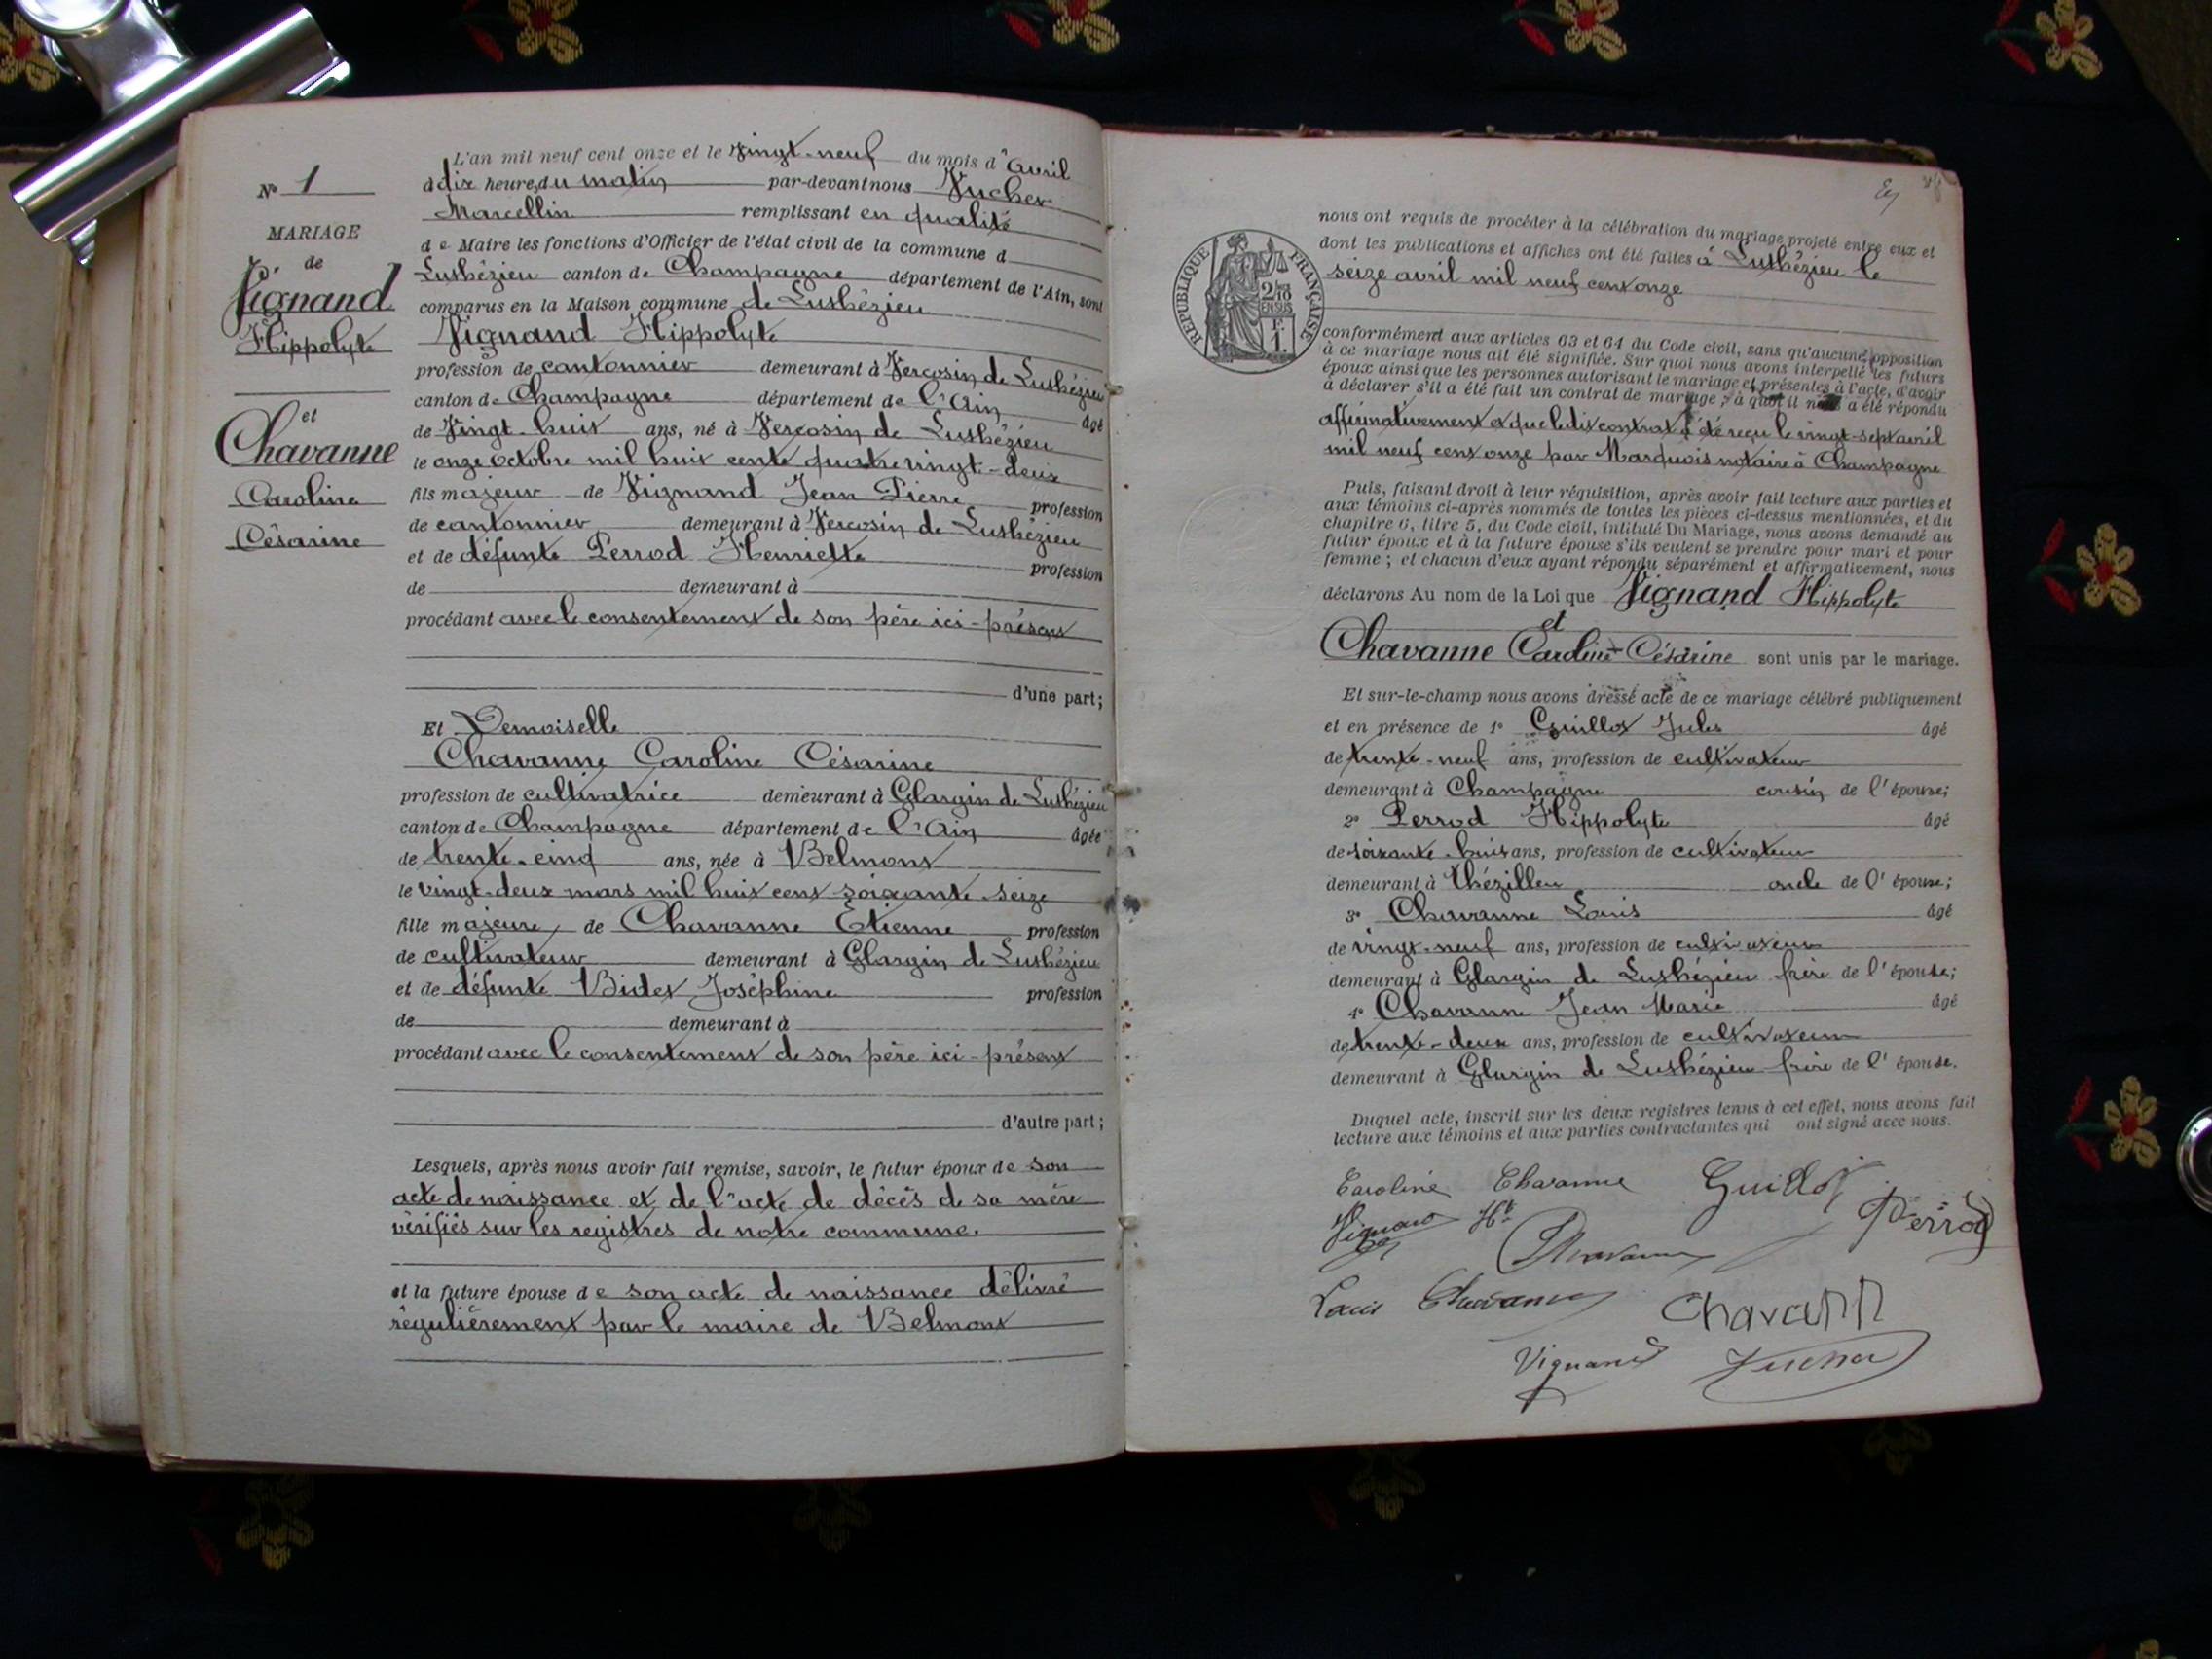 N° 1
MARIAGE
de
Vignand
Hippolyte
et
Chavanne
Caroline
Césarine
L'an mil neuf cent onze et le vingt-neuf du mois d'avril
à dix heures du matin par-devant nous Vucher
Marcellin remplissant en qualité
de Maire les fonctions d'Officier de l'état civil de la commune d
Luthézieu canton de Champagne département de l'Ain, sont
comparus en la Maison commune de Luthézieu
Vignand Hippolyte
profession de cantonnier demeurant à Vercosin de Luthézieu
canton de Champagne département de l'Ain âgé
de vingt-huit ans, né à Vercosin de Luthézieu
le onze octobre mil huit cent quatre vingt-deux
fils majeur de Vignand Jean Pierre profession
de cantonnier demeurant à Vercosin de Luthézieu
et de défunte Perrod Henriette profession
de demeurant à
procédant avec le consentement de son père ici-présent
d'une part;
Et Demoiselle
Chavanne Caroline Césarine
profession de cultivatrice demeurant à Glargin de Luthézieu
canton de Champagne département de l'Ain âgée
de trente-cinq ans, née à Belmont
le vingt-deux mars mil huit cent soixante-seize
fille majeure, de Chavanne Etienne profession
de cultivateur demeurant à Glargin de Luthézieu
et de défunte Bidet Joséphine profession
de demeurant à
procédant avec le consentement de son père ici-présent
d'autre part;
Lesquels, après nous avoir fait remise, savoir, le futur époux de son
acte de naissance et de l'acte de décès de sa mère
vérifiés sur les registres de notre commune.
et la future épouse de son acte de naissance délivré
régulièrement par le maire de Belmont
nous ont requis de procéder à la célébration du mariage projeté entre eux et
dont les publications et affiches ont été faites à Luthézieu le
seize avril mil neuf cent onze
RÉPUBLIQUE FRANÇAISE
2/10
EN SUS
F.
1.
conformément aux articles 63 et 64 du Code civil, sans qu'aucune opposition
à ce mariage nous ait été signifiée. Sur quoi nous avons interpellé les futurs
époux ainsi que les personnes autorisant le mariage et présentes à l'acte, d'avoir
à déclarer s'il a été fait un contrat de mariage; à quoi il nous a été répondu
affirmativement et que ledit contrat a été reçu le vingt-sept avril
mil neuf cent onze par Marquois notaire à Champagne
Puis, faisant droit à leur réquisition, après avoir fait lecture aux parties et
aux témoins ci-après nommés de toutes les pièces ci-dessus mentionnées, et du
chapitre 6, titre 5, du Code civil, intitulé Du Mariage, nous avons demandé au
futur époux et à la future épouse s'ils veulent se prendre pour mari et pour
femme; et chacun d'eux ayant répondu séparément et affirmativement, nous
déclarons Au nom de la Loi que Vignand Hippolyte
et
Chavanne Caroline Césarine sont unis par le mariage.
Et sur-le-champ nous avons dressé acte de ce mariage célébré publiquement
et en présence de 1° Guillot Jules âgé
de trente-neuf ans, profession de cultivateur
demeurant à Champagne cousin de l'épouse;
2° Perrod Hippolyte âgé
de soixante-huit ans, profession de cultivateur
demeurant à Thézillieu oncle de l'épouse;
3° Chavanne Louis âgé
de vingt-neuf ans, profession de cultivateur
demeurant à Glargin de Luthézieu frère de l'épouse;
4° Chavanne Jean Marie âgé
de trente-deux ans, profession de cultivateur
demeurant à Glargin de Luthézieu frère de l'épouse.
Duquel acte, inscrit sur les deux registres tenus à cet effet, nous avons fait
lecture aux témoins et aux parties contractantes qui ont signé avec nous.
Caroline Chavanne Guillot
Vignand Hte Perrod
Chavanne
Louis Chavanne Chavann
Vignand Vucher